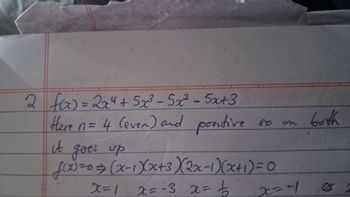 2 f(x) = 2x⁴ + 5x³ - 5x² - 5x + 3
Here n = 4 (even) and positive so on both
it goes up
f(x) = 0 ⇒ (x-1)(x+3)(2x-1)(x+1) = 0
x = 1 x = -3 x = 1/2 x = -1 as